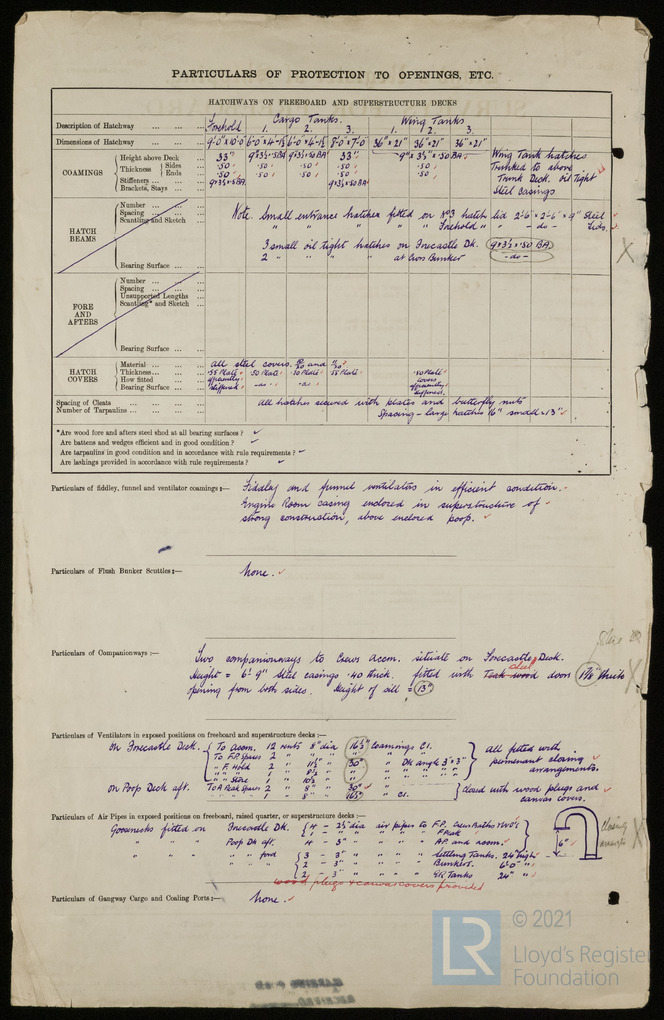 PARTICULARS OF PROTECTION TO OPENINGS, ETC.
HATCHWAYS ON FREEBOARD AND SUPERSTRUCTURE DECKS
Cargo Tanks. Wing Tanks
Description of Hatchway ... Forehold 1. 2. 3. 1. 2. 3.
Dimensions of Hatchway ... 9'-0" x 10'-0 6'-0 x 4'-1½ 6'-0 x 4'-1½ 8'-0 x 7'-0 36" x 21" 36" x 21" 36" x 21"
COAMINGS
Height above Deck ... 33" 9x3½·50BA 9x3½·50BA 33" 9" x 3½" x ·50 BA Wing Tank hatches
Thickness Sides ... ·50 ·50 ·50 ·50 Trunked to above
Ends ... ·50 ·50 ·50 ·50 Trunk Deck. oil tight
Stiffeners ... 9x3½x·50BA 9x3½x·50BA Steel casings
Brackets, Stays ...
HATCH BEAMS
Number ...
Spacing ...
Scantling and Sketch ...
Bearing Surface ...
Note. Small entrance hatches fitted on No3 hatch lid 2'-6" x 2'-6" x 9" Steel
" " " " " Forehold " " -do- Lids.
3 small oil tight hatches on Forecastle Dk. 9x3½x·50 BA
2 " " " at Cross Bunker -do-
FORE AND AFTERS
Number ...
Spacing ...
Unsupported Lengths ...
Scantling* and Sketch ...
Bearing Surface ...
HATCH COVERS
Material ... all steel covers.
Thickness ... ·55 Plate ·50 Plate ·50 Plate ·55 Plate ·50 Plate
How fitted ... efficiently -do- -do- covers efficiently
Bearing Surface ... stiffened stiffened.
Spacing of Cleats ... All hatches secured with plates and butterfly nuts
Number of Tarpaulins ... Spacing - large hatches 16" small = 13"
*Are wood fore and afters steel shod at all bearing surfaces?
Are battens and wedges efficient and in good condition?
Are tarpaulins in good condition and in accordance with rule requirements?
Are lashings provided in accordance with rule requirements?
Particulars of fiddley, funnel and ventilator coamings:— Fiddley and funnel ventilators in efficient condition.
Engine Room casing enclosed in superstructure of
strong construction, above enclosed poop.
Particulars of Flush Bunker Scuttles:— None.
Particulars of Companionways:— Two companionways to Crews Accm. situate on Forecastle Deck.
Height = 6'-9" Steel casings ·40 thick. fitted with Teak wood steel doors 1⅞" thick
opening from both sides. Height of sill = 13"
Particulars of Ventilators in exposed positions on freeboard and superstructure decks:—
On Forecastle Deck. To Accm. 12 vents 8" dia 16½" Coamings C1. all fitted with
To F.P. spaces 2 " " " " " permanent closing
" F. Hold 2 " 11½" " 30" " Dk angle 3" x 3" arrangements.
" " " " 8½" " " " " " "
" Store 1 " 10½ " " "
On Poop Deck aft. To A Peak Spaces 2 " 8" " 30" " closed with wood plugs and
" " " 1 " 8" 16½" " C1. canvas covers.
Particulars of Air Pipes in exposed positions on freeboard, raised quarter, or superstructure decks:—
Goosenecks fitted on Forecastle Dk. 4 - 2½" dia air pipes to F.P. Crew Baths & WC's
" - " " " " F Peak
" " " Poop Dk aft. 4 - 3" " " " AP. and accm. 6"
" " " " fwd 3 - 3" " " " Settling Tanks. 24" high
2 - 3" " " " Bunkers. 6'-0" "
2 - 3" " " " Tanks 24" "
wood plugs & canvas covers provided
Particulars of Gangway Cargo and Coaling Ports:— None.
LR
© 2021
Lloyd's Register
Foundation